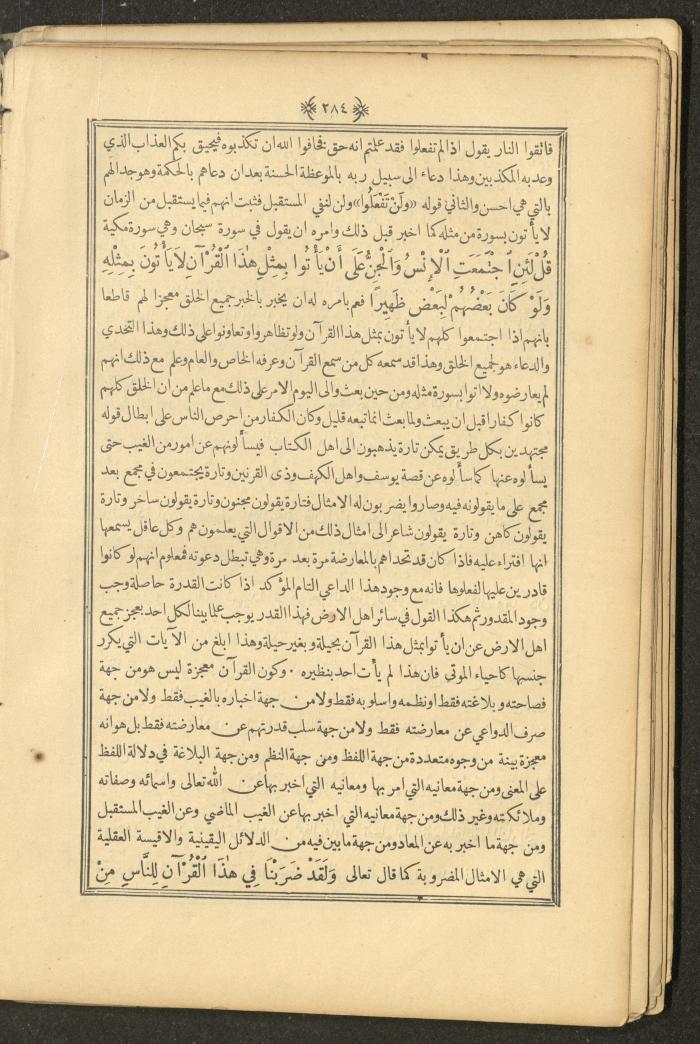 ٢٨٤
فاتقوا النار يقول اذا لم تفعلوا فقد علمتم انه حق فخافوا الله ان تكذبوه فيحيق بكم العذاب الذي
وعد به المكذبين وهذا دعاء الى سبيل ربه بالموعظة الحسنة بعد ان دعاهم بالحكمة وهو جدالهم
بالتي هي احسن والثاني قوله «وَلَنْ تَفْعَلُوا» ولن لنفي المستقبل فثبت انهم فيما يستقبل من الزمان
لا يأتون بسورة من مثله كما اخبر قبل ذلك وامره ان يقول في سورة سبحان وهي سورة مكية
قُلْ لَئِنِ ٱجْتَمَعَتِ ٱلْإِنْسُ وَٱلْجِنُّ عَلَى أَنْ يَأْتُوا بِمِثْلِ هٰذَا ٱلْقُرْآنِ لَا يَأْتُونَ بِمِثْلِهِ
وَلَوْ كَانَ بَعْضُهُمْ لِبَعْضٍ ظَهِيرًا فعم بامره له ان يخبر بالخبر جميع الخلق معجزا لهم قاطعا
بانهم اذا اجتمعوا كلهم لا يأتون بمثل هذا القرآن ولو تظاهروا وتعاونوا على ذلك وهذا التحدي
والدعاء هو لجميع الخلق وهذا قد سمعه كل من سمع القرآن وعرفه الخاص والعام وعلم مع ذلك انهم
لم يعارضوه ولا اتوا بسورة مثله ومن حين بعث والى اليوم الامر على ذلك مع ما علم من ان الخلق كلهم
كانوا كفارا قبل ان يبعث ولما بعث انما تبعه قليل وكان الكفار من احرص الناس على ابطال قوله
مجتهدين بكل طريق يمكن تارة يذهبون الى اهل الكتاب فيسألونهم عن امور من الغيب حتى
يسألوه عنها كما سألوه عن قصة يوسف واهل الكهف وذى القرنين وتارة يجتمعون في مجمع بعد
مجمع على ما يقولونه فيه وصاروا يضربون له الامثال فتارة يقولون مجنون وتارة يقولون ساحر وتارة
يقولون كاهن وتارة يقولون شاعر الى امثال ذلك من الاقوال التي يعلمون هم وكل عاقل يسمعها
انها افتراء عليه فاذا كان قد تحداهم بالمعارضة مرة بعد مرة وهي تبطل دعوته فمعلوم انهم لو كانوا
قادرين عليها لفعلوها فانه مع وجود هذا الداعي التام المؤكد اذا كانت القدرة حاصلة وجب
وجود المقدور ثم هكذا القول في سائر اهل الارض فهذا القدر يوجب علما بينا لكل احد بعجز جميع
اهل الارض عن ان يأتوا بمثل هذا القرآن بحيلة وبغير حيلة وهذا ابلغ من الآيات التي يكرر
جنسها كاحياء الموتى فان هذا لم يأت احد بنظيره . وكون القرآن معجزة ليس هو من جهة
فصاحته وبلاغته فقط او نظمه واسلوبه فقط ولا من جهة اخباره بالغيب فقط ولا من جهة
صرف الدواعي عن معارضته فقط ولا من جهة سلب قدرتهم عن معارضته فقط بل هو انه
معجزة بينة من وجوه متعددة من جهة اللفظ ومن جهة النظم ومن جهة البلاغة في دلالة اللفظ
على المعنى ومن جهة معانيه التي امر بها ومعانيه التي اخبر بها عن الله تعالى واسمائه وصفاته
وملائكته وغير ذلك ومن جهة معانيه التي اخبر بها عن الغيب الماضي وعن الغيب المستقبل
ومن جهة ما اخبر به عن المعاد ومن جهة ما بين فيه من الدلائل اليقينية والاقيسة العقلية
التي هي الامثال المضروبة كما قال تعالى وَلَقَدْ ضَرَبْنَا فِي هٰذَا ٱلْقُرْآنِ لِلنَّاسِ مِنْ